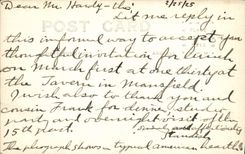 2/25/25
Dear Mr. Hardy - this
Let me reply in
this informal way to accept your
thoughtful invitation for lunch
on March first at one thirty at
the Tavern in Mansfield.
I wish also to thank you and
cousin Frank for dinner, studio
party and overnight visit of the
15th past.
The photograph shows a typical American
POST CARD